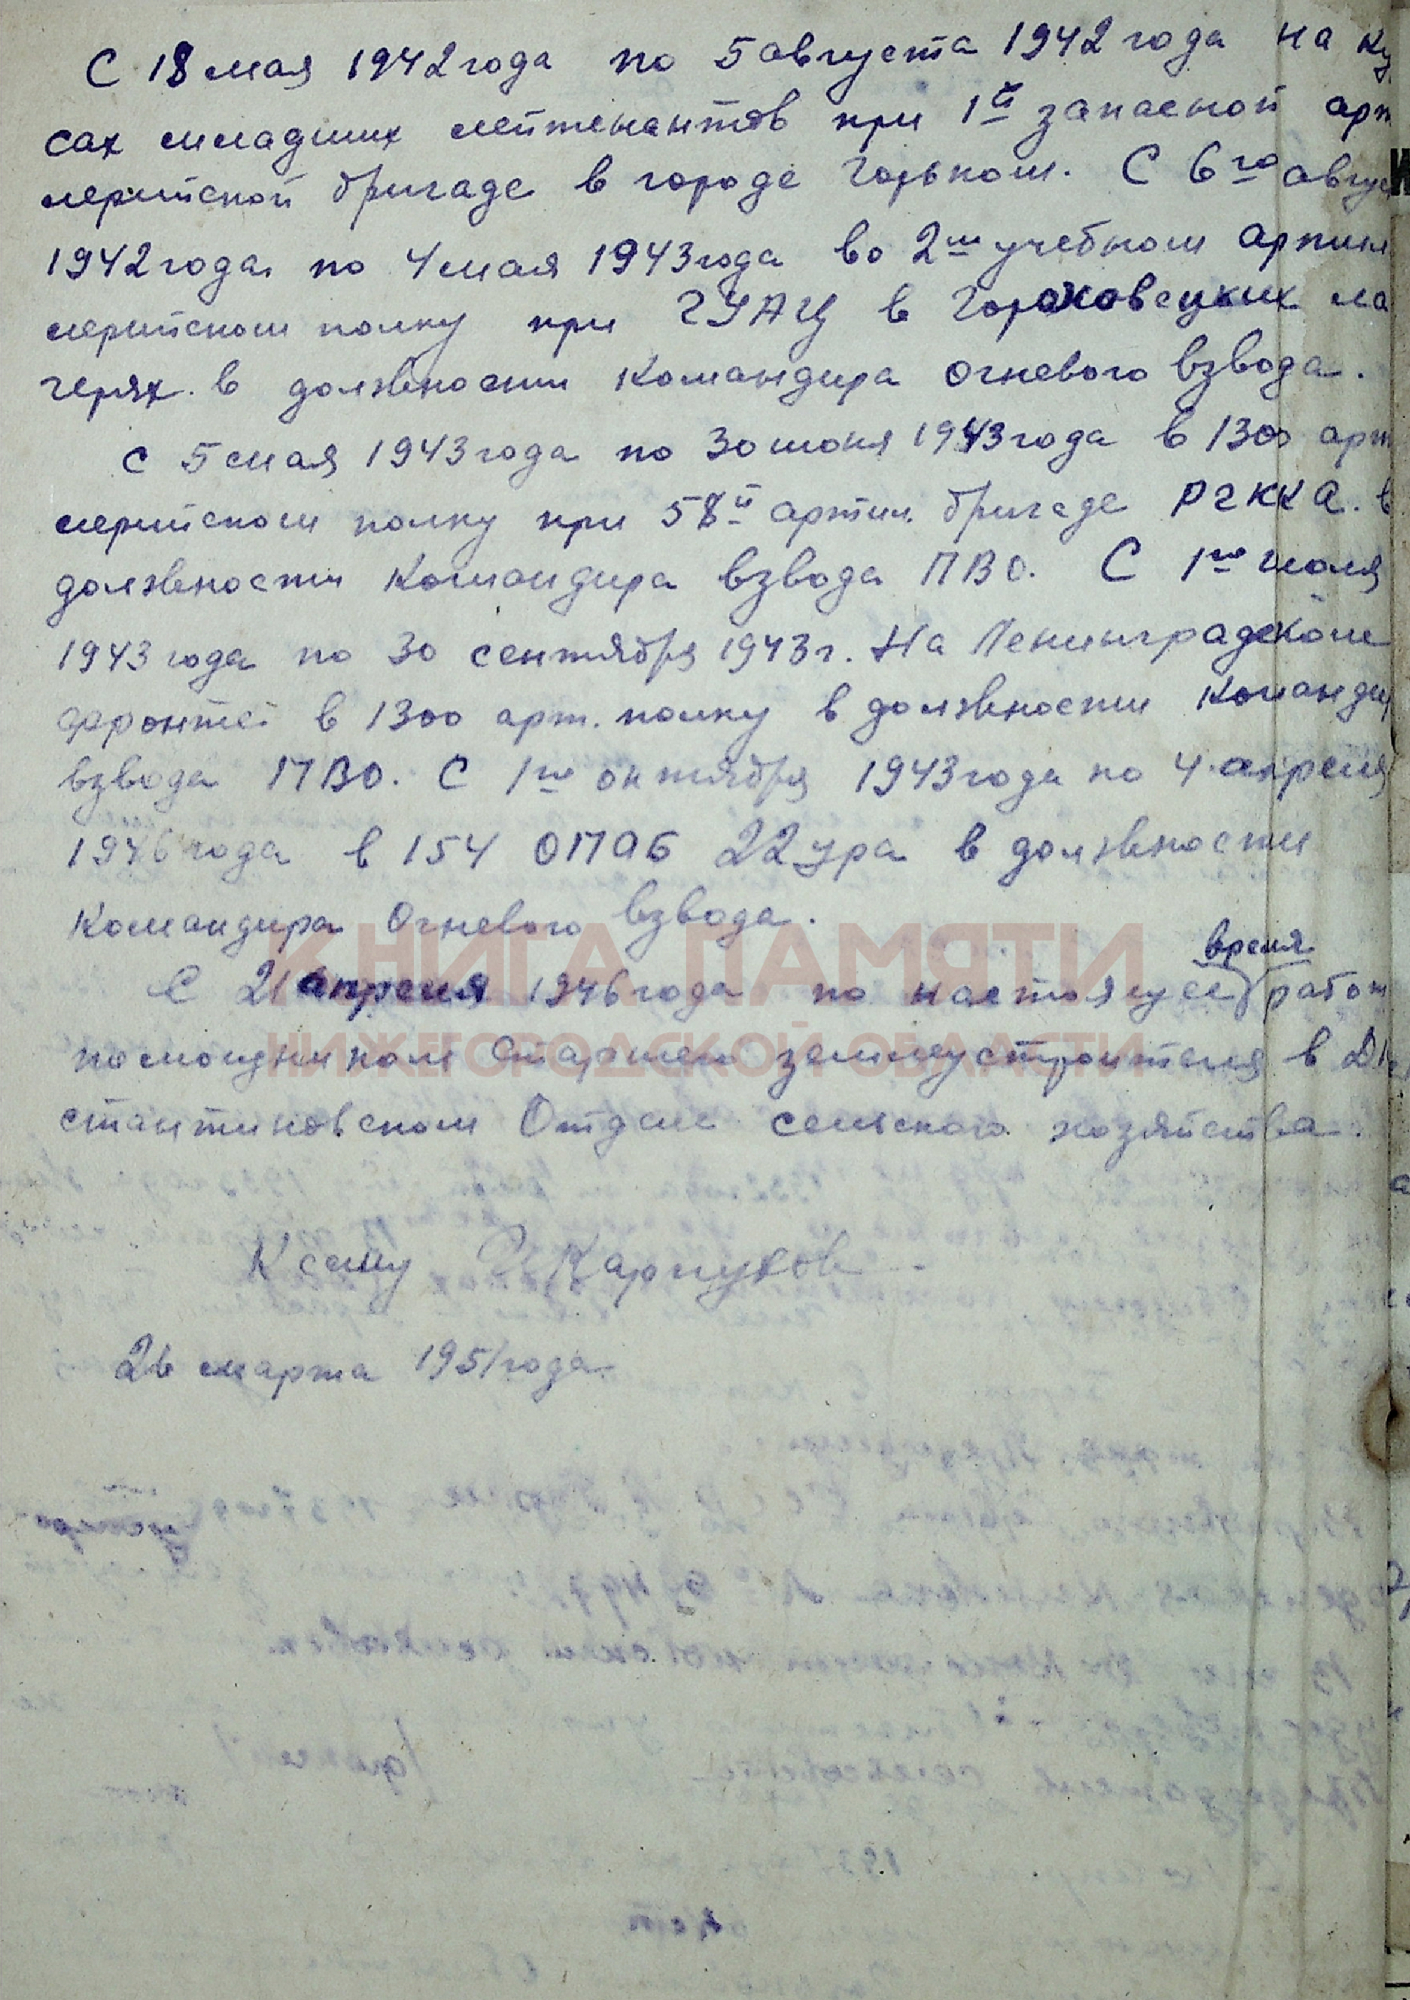 С 18 мая 1942 года по 5 августа 1942 года на ку
сах младших лейтенантов при 1й запасной арт
лерийской бригаде в городе Горьком. С 6го авгус
1942 года по 4 мая 1943 года во 2м учебном артил
лерийском полку при ГУАЦ в Гороховецких ла
герях в должности командира огневого взвода.
С 5 мая 1943 года по 30 июня 1943 года в 1300 арт
лерийском полку при 58й артил. бригаде РГККА в
должности командира взвода ПВО. С 1го июля
1943 года по 30 сентября 1943 г. На Ленинградском
фронте в 1300 арт. полку в должности команди
взвода ПВО. С 1го октября 1943 года по 4 апреля
1946 года в 154 ОПАБ 22 ура в должности
командира Огневого взвода.
время
С 21 апреля 1946 года по настоящее работ
помощником Старшего землеустроителя в Д
стантиновском Отделе сельского хозяйства.
К сему Карпухов
26 марта 1951 года.
КНИГА ПАМЯТИ
НИЖЕГОРОДСКОЙ ОБЛАСТИ